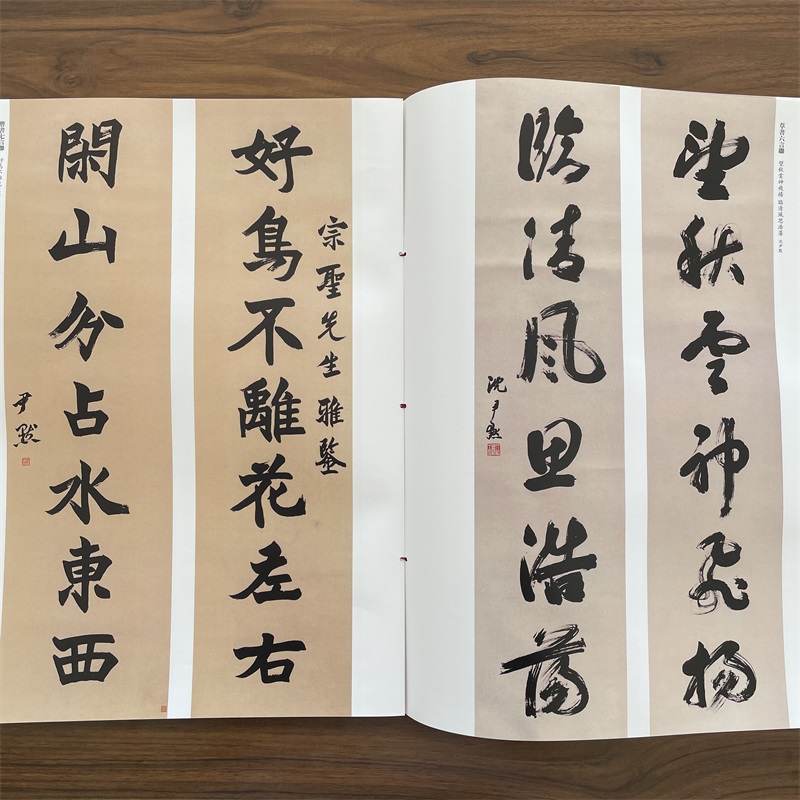 草書六言聯
望秋雲神飛揚 臨清風思浩蕩 沈尹默
望秋雲神飛揚
臨清風思浩蕩
沈尹默
宗聖先生雅鑒
好鳥不離花左右
閑山分占水東西
尹默
楷書七言聯